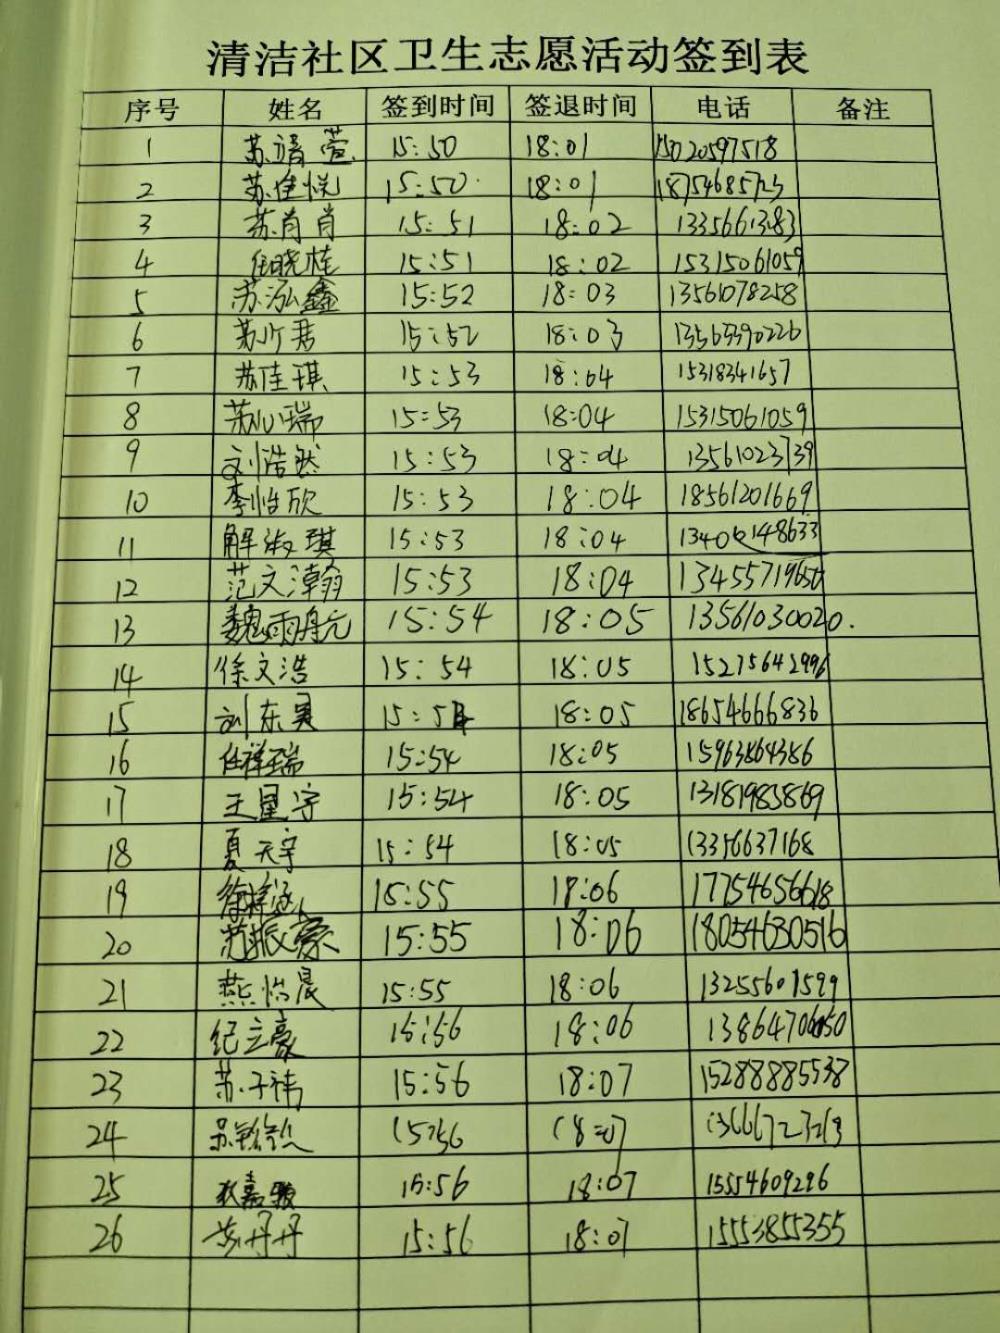 清洁社区卫生志愿活动签到表
序号 姓名 签到时间 签退时间 电话 备注
1 苏清萱 15:50 18:01 15020597518
2 苏佳悦 15:50 18:01 18754685723
3 苏肖肖 15:51 18:02 13356613283
4 任晓桂 15:51 18:02 15315061059
5 苏泓鑫 15:52 18:03 13561078258
6 15:52 18:03
7 苏佳琪 15:53 18:04 15318341657
8 苏心瑞 15:53 18:04 15315061059
9 刘浩然 15:53 18:04 13561023739
10 李怡欣 15:53 18:04 18561201669
11 解淑琪 15:53 18:04
12 范文瀚 15:53 18:04
13 魏雨舟元 15:54 18:05 13561030020.
14 徐文浩 15:54 18:05 15275642996
15 刘东昊 15:54 18:05 18654666836
16 任祥瑞 15:54 18:05 15963864386
17 王星宇 15:54 18:05 13181983869
18 夏天宇 15:54 18:05 13356637168
19 15:55 18:06 17754656618
20 苏振豪 15:55 18:06 18054630516
21 燕怡晨 15:55 18:06
22 纪立豪 15:56 18:06
23 苏子祎 15:56 18:07 15288885538
24 15:56 18:07
25 狄嘉骏 15:56 18:07 15554609296
26 苏丹丹 15:56 18:07 15553855355